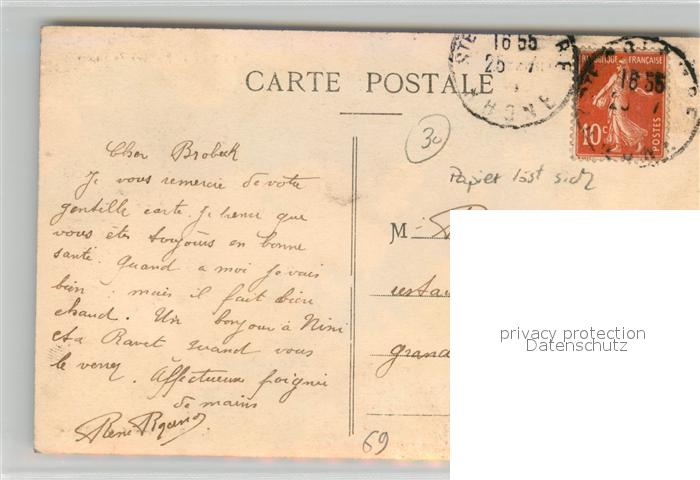 CARTE POSTALE
16 55
25 7
RÉPUBLIQUE FRANÇAISE
10 c
POSTES
16 55
25 7
30
Papier löst sich
Cher Brobeck
Je vous remercie de votre
gentille carte. Je pense que
vous êtes toujours en bonne
santé. Quand a moi je vais
bien; mais il fait bien
chaud. Un bonjour à Nini
et a Ravet quand vous
le verrez. Affectueux poignée
de mains
René
M
restau
grand
69
privacy protection
Datenschutz